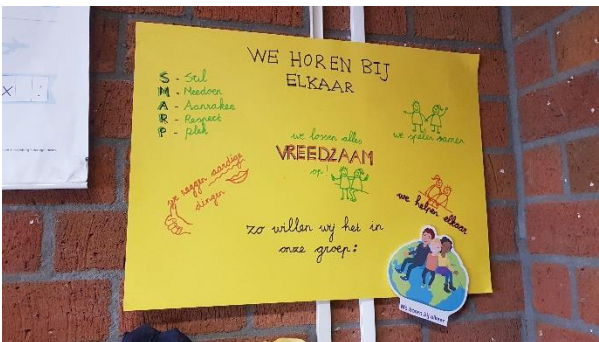 WE HOREN BIJ
ELKAAR
S - Stil
M - Meedoen
A - Aanraken
R - Respect
P - plek
we lossen alles
VREEDZAAM
op!
we spelen samen
we zeggen aardige
dingen
we helpen elkaar
zo willen wij het in
onze groep:
We horen bij elkaar
X